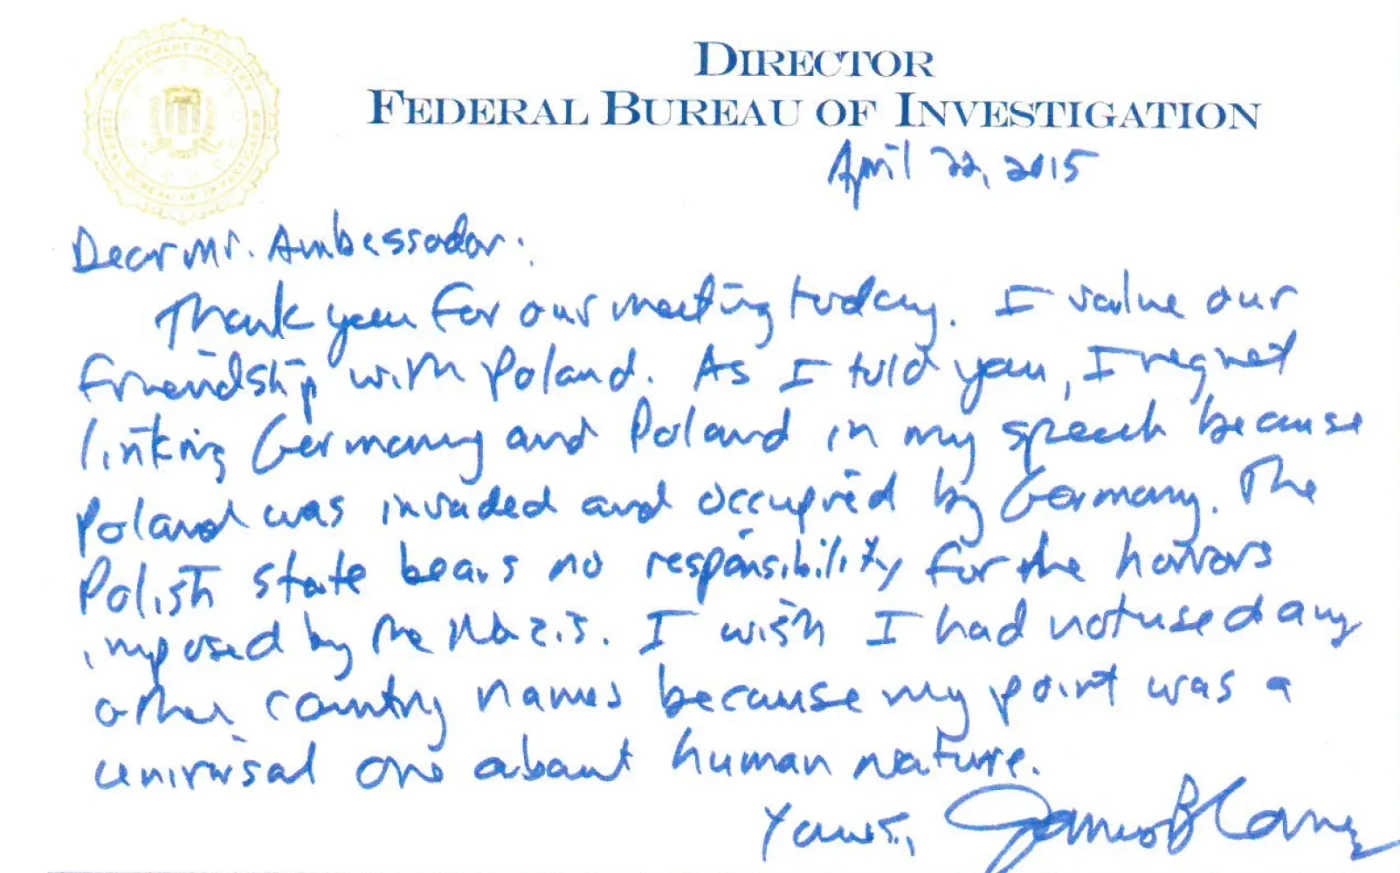 DIRECTOR
FEDERAL BUREAU OF INVESTIGATION
April 22, 2015
Dear Mr. Ambassador:
Thank you for our meeting today. I value our
friendship with Poland. As I told you, I regret
linking Germany and Poland in my speech because
Poland was invaded and occupied by Germany. The
Polish state bears no responsibility for the horrors
imposed by the Nazis. I wish I had not used any
other country names because my point was a
universal one about human nature.
Yours, James B Comey